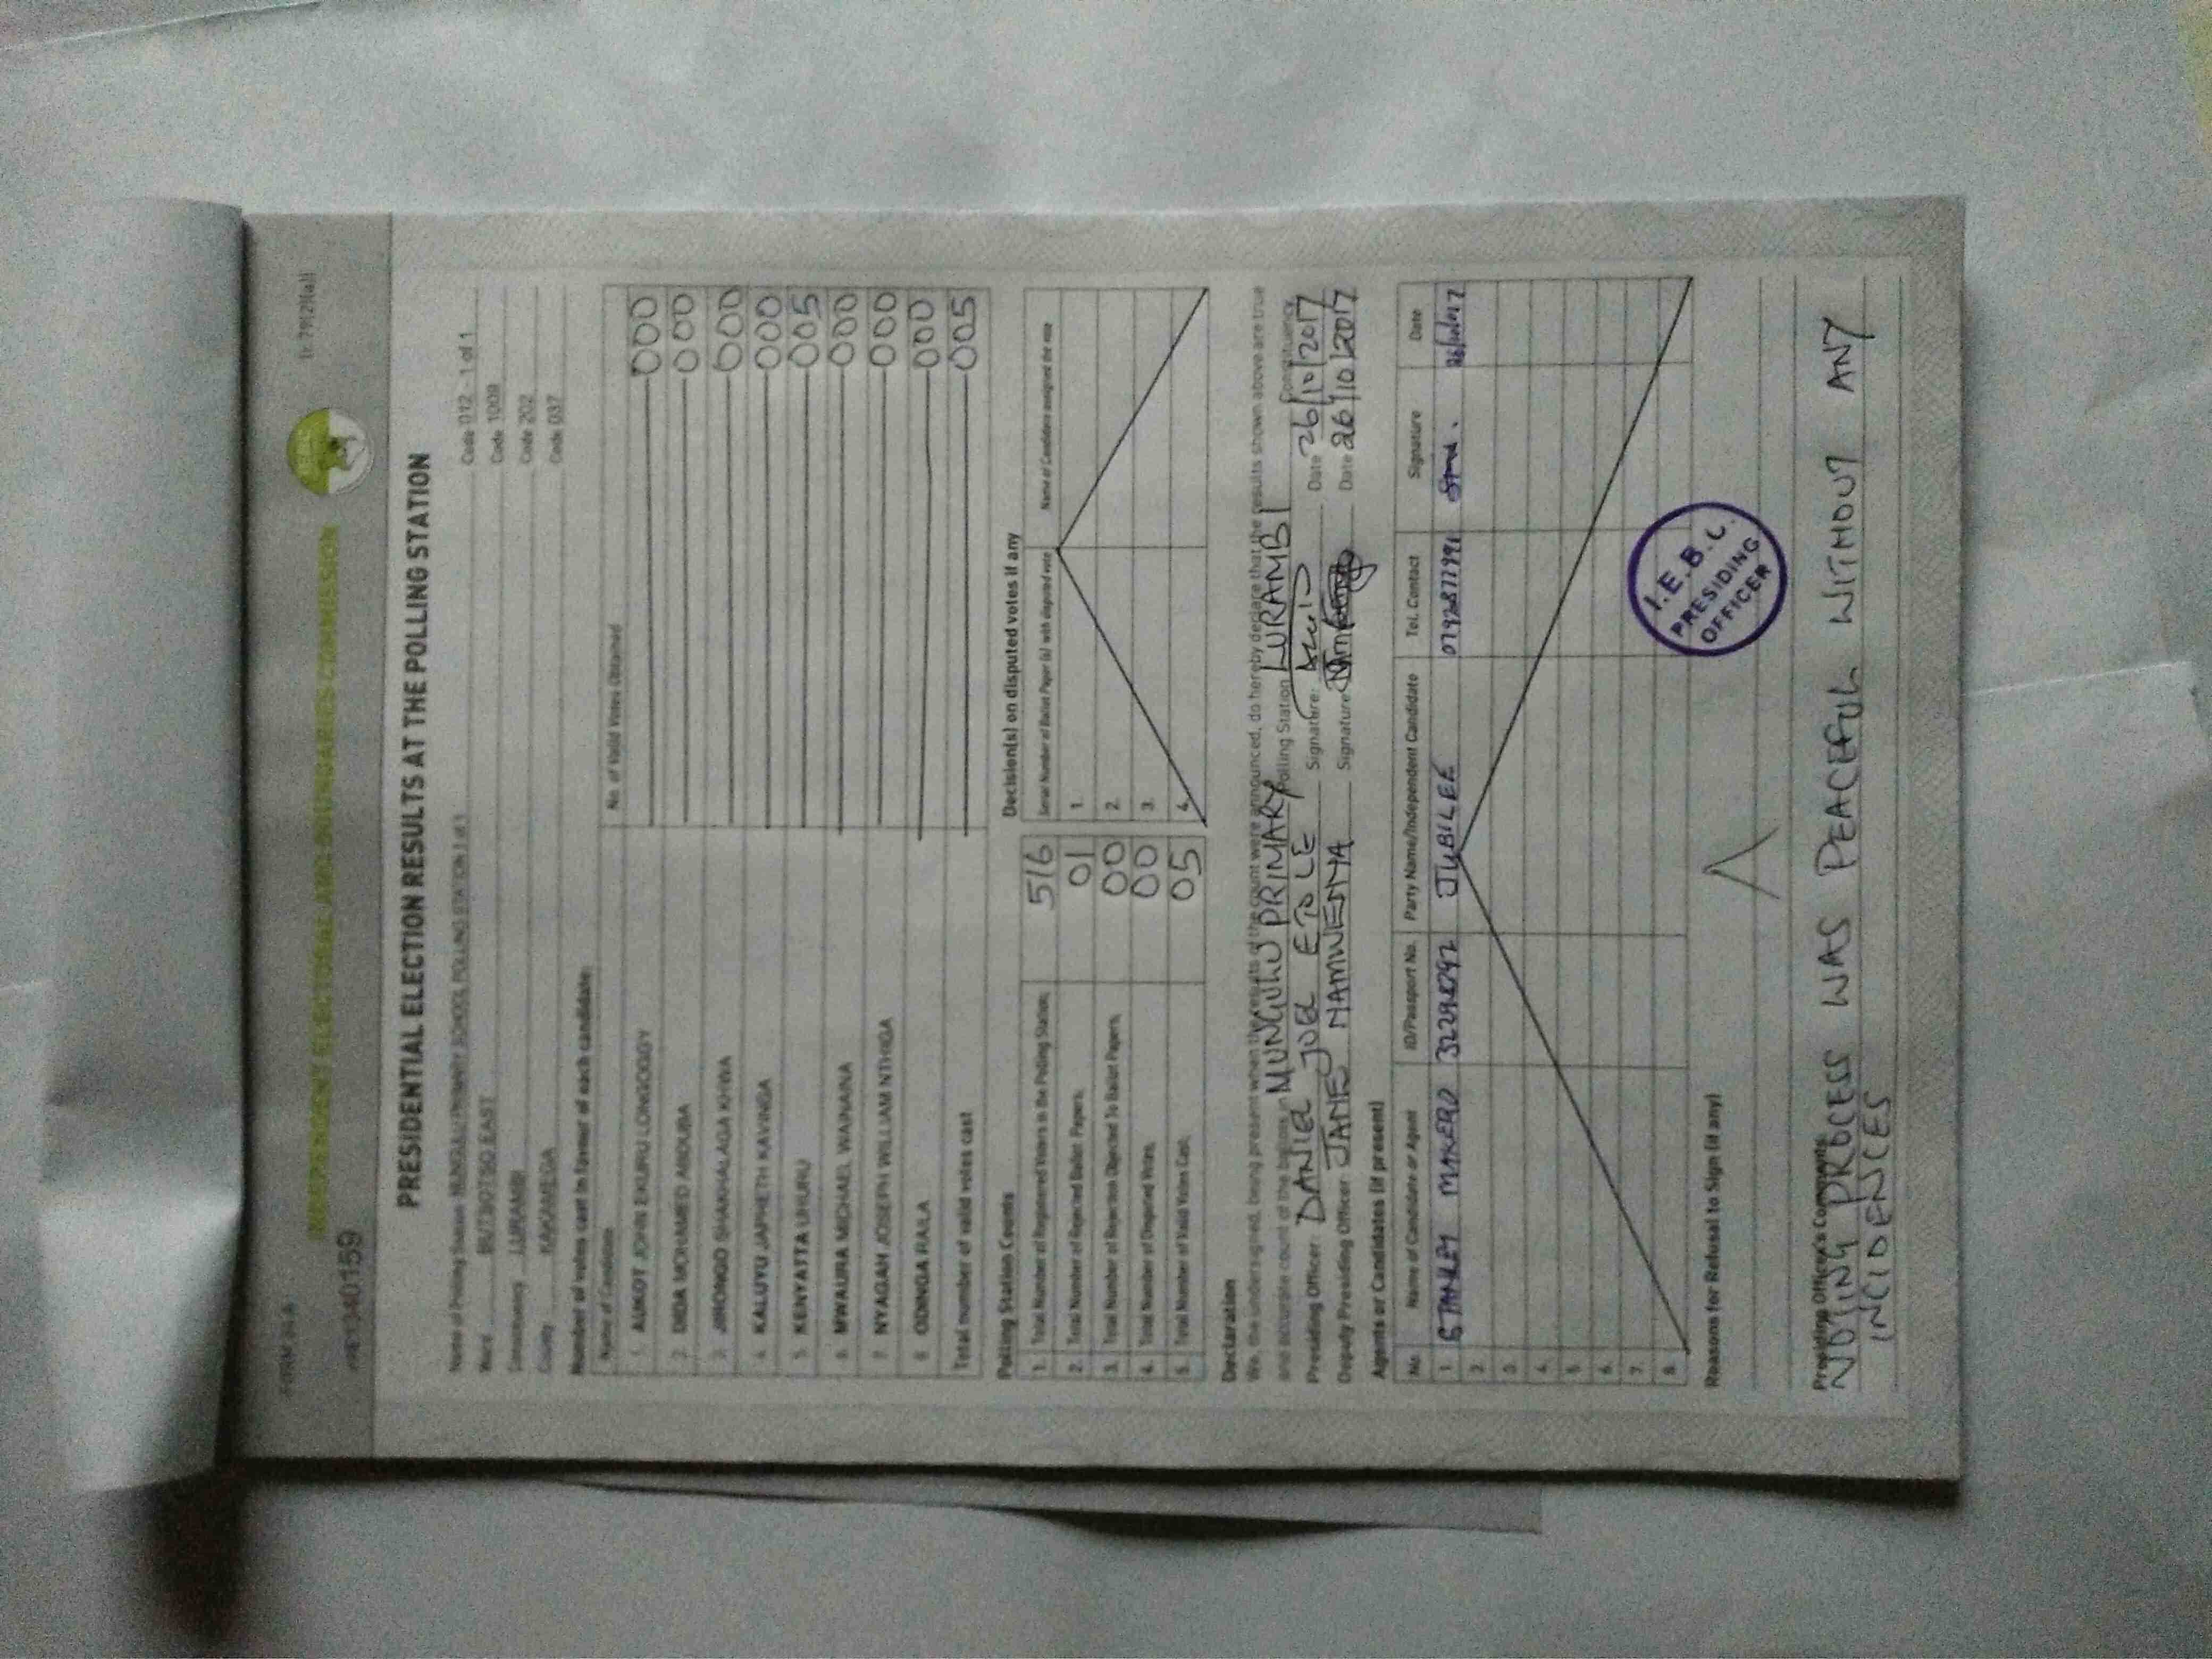 FORM 34 A
(r.79(2)(a))
INDEPENDENT ELECTORAL AND BOUNDARIES COMMISSION
PRESIDENTIAL ELECTION RESULTS AT THE POLLING STATION
Name of Polling Station MUNGULU PRIMARY SCHOOL POLLING STATION 1 of 1 Code 012 - 1 of 1
Ward BUTSOTSO EAST Code 1009
Constituency LURAMBI Code 202
County KAKAMEGA Code 037
Number of votes cast in favour of each candidate:
Name of Candidate No. of Valid Votes Obtained
1. AUKOT JOHN EKURU LONGOGGY 000
2. DIDA MOHAMED ABDUBA 000
3. JIRONGO SHAKHALAGA KHWA 000
4. KALUYU JAPHETH KAVINGA 000
5. KENYATTA UHURU 005
6. MWAURA MICHAEL WAINAINA 000
7. NYAGAH JOSEPH WILLIAM NTHIGA 000
8. ODINGA RAILA 000
Total number of valid votes cast 005
Polling Station Counts
1. Total Number of Registered Voters in the Polling Station; 516
2. Total Number of Rejected Ballot Papers; 01
3. Total Number of Rejection Objected To Ballot Papers; 00
4. Total Number of Disputed Votes; 00
5. Total Number of Valid Votes Cast; 05
Decision(s) on disputed votes if any
Serial Number of Ballot Paper (s) with disputed vote Name of Candidate assigned the vote
1.
2.
3.
4.
Declaration
We, the undersigned, being present when the results of the count were announced, do hereby declare that the results shown above are true
and accurate count of the ballots in MUNGULU PRIMARY Polling Station LURAMBI Constituency
Presiding Officer: DANIEL JOEL ETOLE Signature: Date 26/10/2017
Deputy Presiding Officer: JANE NAMWENYA Signature Date 26/10/2017
Agents or Candidates (if present)
No. Name of Candidate or Agent ID/Passport No. Party Name/Independent Candidate Tel. Contact Signature Date
1. STANLEY MAKERO JUBILEE 26/10/017
2.
3.
4.
5.
6.
7.
8.
I.E.B.C.
PRESIDING
OFFICER
Reasons for Refusal to Sign (if any)
Presiding Officer's Comments:
VOTING PROCESS WAS PEACEFUL WITHOUT ANY
INCIDENCES